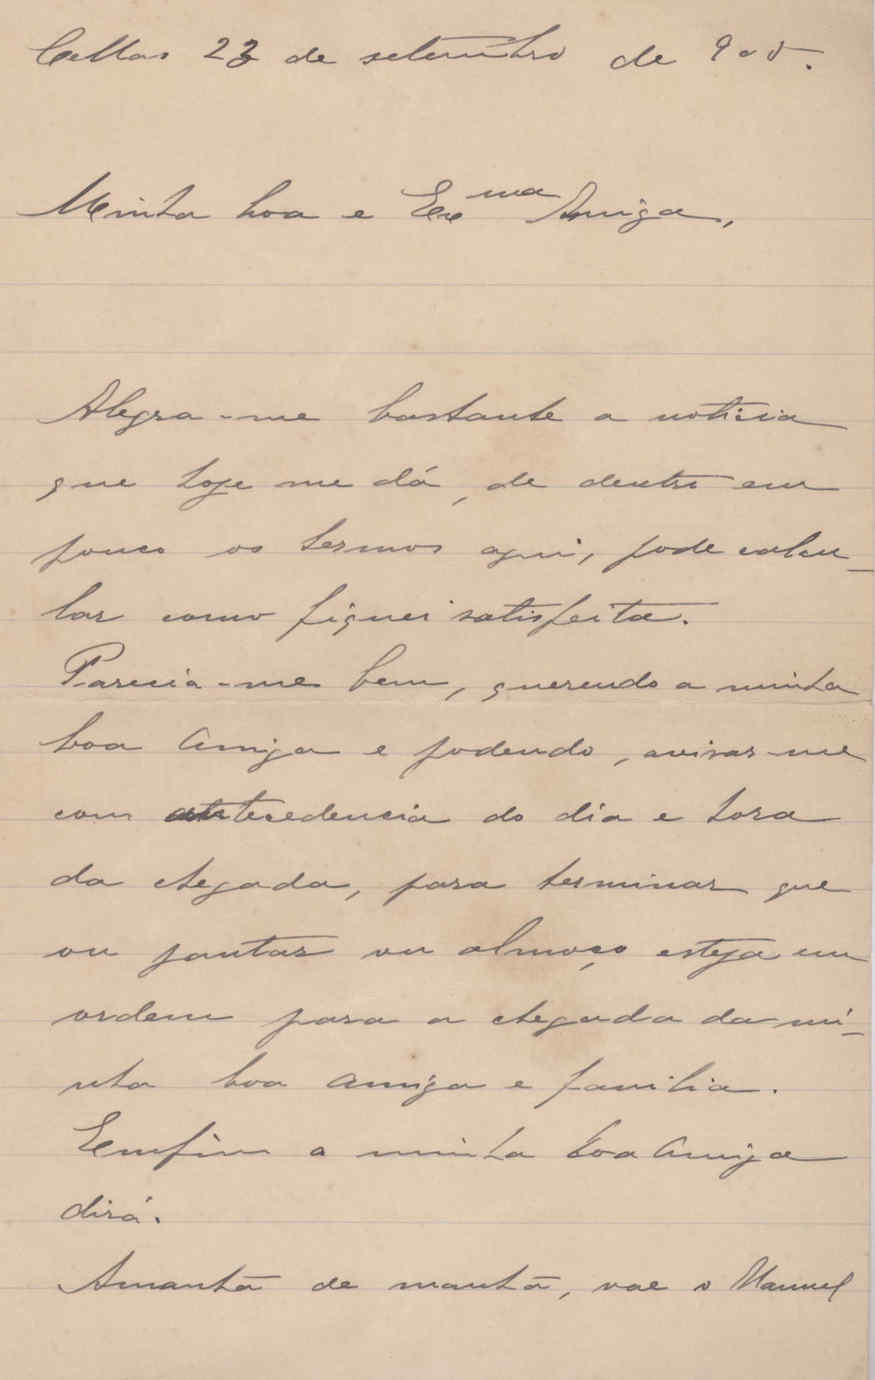 Cellas 23 de setembro de 905.
Minha boa e Exma Amiga,
Alegra-me bastante a noticia
que hoje me dá, de dentro em
pouco os termos aqui, pode calcu-
lar como fiquei satisfeita.
Parecia-me bem, querendo a minha
boa amiga e podendo, avisar-me
com antecedencia do dia e hora
da chegada, para terminar que
ou jantar ou almoço esteja em
ordem para a chegada da mi-
nha boa amiga e familia.
Emfim a minha boa amiga
dirá.
Amanhã de manhã, vae o Manuel